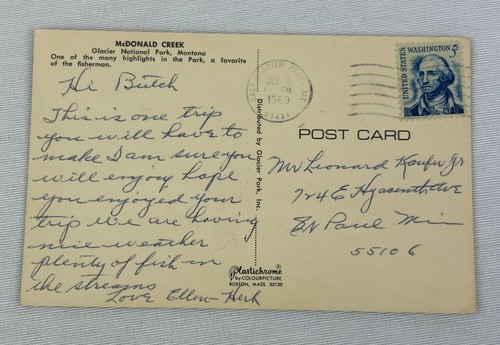 McDONALD CREEK
Glacier National Park, Montana
One of the many highlights in the Park, a favorite
of the fisherman.
Hi Butch
This is one trip
you will have to
make I am sure you
will enjoy hope
you enjoyed your
trip we are having
nice weather
plenty of fish in
the streams
Love Ellen Herb
Distributed by Glacier Park, Inc.
Plastichrome
by COLOURPICTURE
BOSTON, MASS. 02130
GLACIER PARK, MT
SEP 3
PM
1969
UNITED STATES
WASHINGTON 5c
POST CARD
Mr Leonard Jr
724 E Hyacinth Ave
St Paul Min
55106